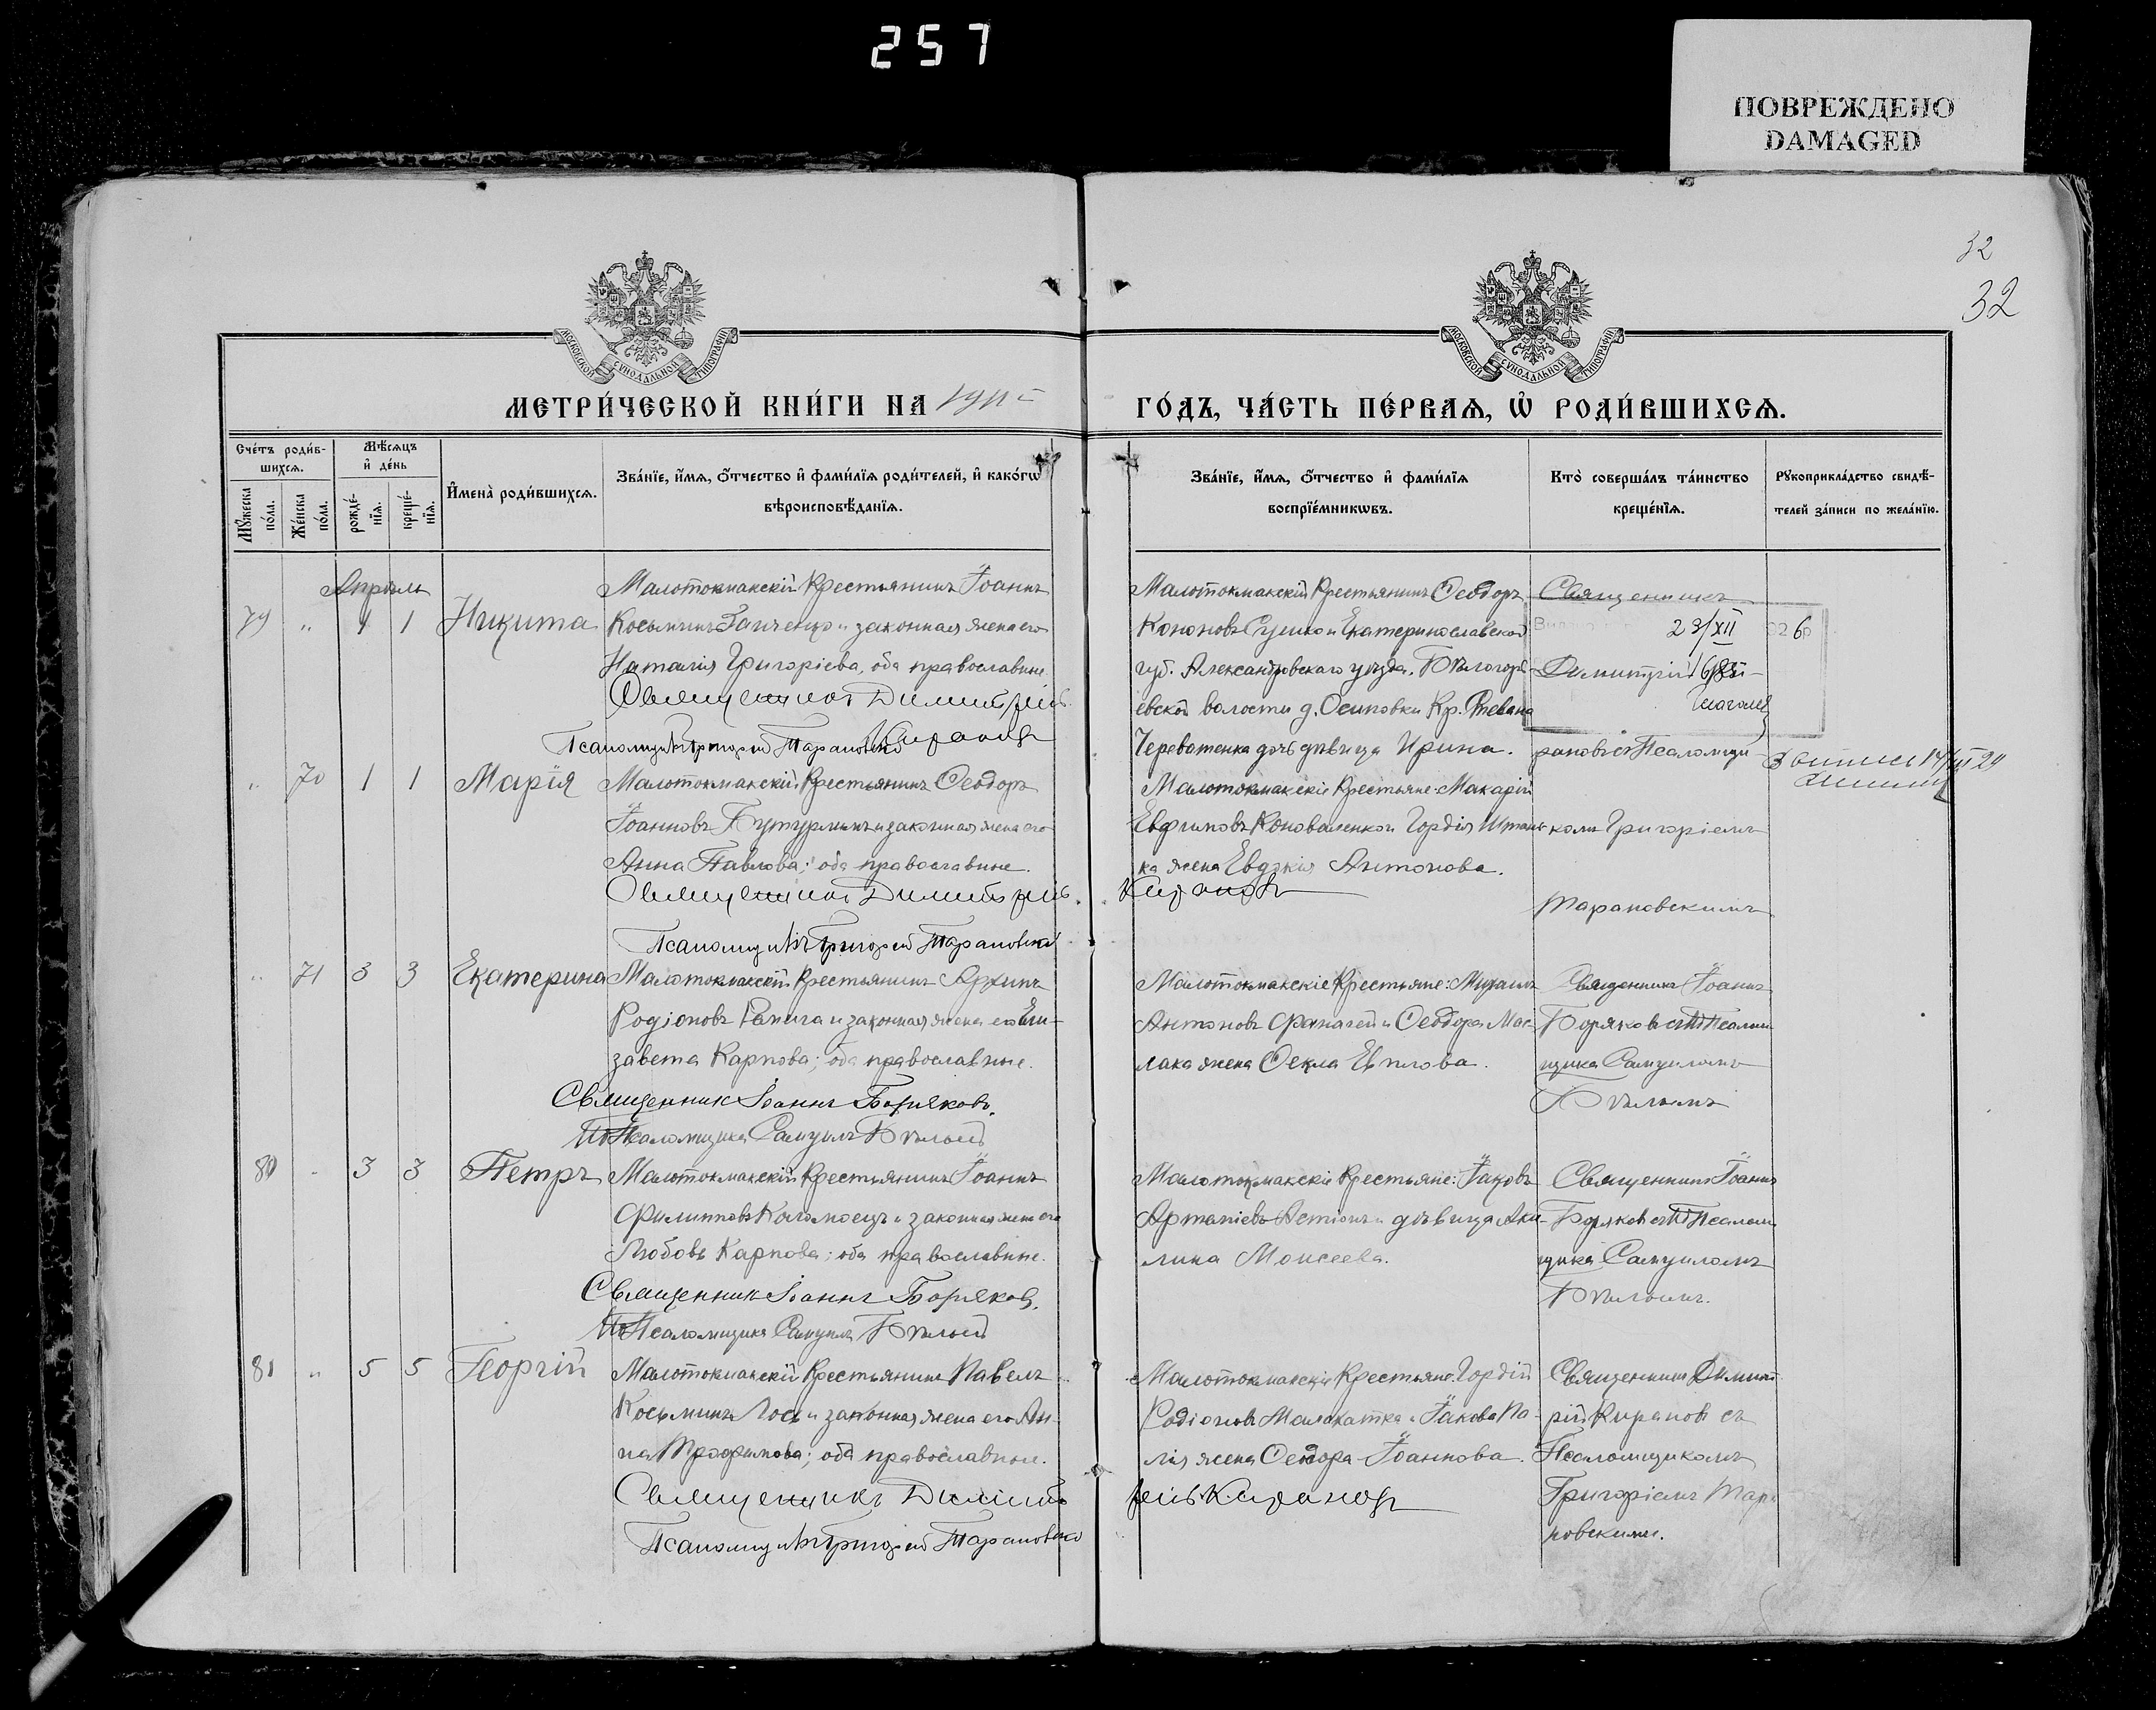 257
ПОВРЕЖДЕНО
DAMAGED
32
32
МОСКОВСКОЙ СѴНОДАЛЬНОЙ ТИПОГРАФІИ
МОСКОВСКОЙ СѴНОДАЛЬНОЙ ТИПОГРАФІИ
МЕТРИ́ЧЕСКОЙ КНИ́ГИ НА 1911
ГО́ДЪ, ЧА́СТЬ ПЕ́РВАѦ, Ѡ҆ РОДИ́ВШИХСѦ.
Сче́тъ роди́в-
шихсѧ.
Мꙋ́жеска по́ла.
Же́нска по́ла.
Мѣ́сѧцъ
и҆ де́нь
рожде́-нїѧ.
креще́-нїѧ.
И҆мена̀ роди́вшихсѧ.
Зва́нїе, и҆́мѧ, ѻ҆́тчество и҆ фами́лїѧ роди́телей, и҆ како́гѡ
вѣроисповѣ́данїѧ.
Зва́нїе, и҆́мѧ, ѻ҆́тчество и҆ фами́лїѧ
воспрїе́мникѡвъ.
Кто̀ соверша́лъ та́инство
креще́нїѧ.
Рꙋкоприкла́дство свидѣ́-
телей за́писи по жела́нїю.
Апрѣль
79 " 1 1 Никита
Малотокмакскій Крестьянинъ Іоаннъ
Косьминъ Ганченко и законная жена его
Наталія Григоріева, оба православные.
Священникъ Димитрій
Киранов
Псаломщикъ Григорій Тарановскій
Малотокмакскій Крестьянинъ Ѳеодоръ
Кононовъ Сушко и Екатеринославской
губ. Александровскаго уѣзда, Бѣлогорь-
евской волости д. Осиповки Кр. Стефана
Череватенка дочь дѣвица Ирина.
Священникъ
23/XII 26
Димитрій Ки-
рановъ съ Псаломщи-
" 70 1 1 Марія
Малотокмакскій Крестьянинъ Ѳеодоръ
Іоанновъ Бутурлинъ и законная жена его
Анна Павлова; оба православные.
Священникъ Димитрій
Киранов
Псаломщикъ Григорій Тарановскій
Малотокмакскіе Крестьяне: Макарій
Евфимовъ Коноваленко и Гордія Штань-
ка жена Евдокія Антонова.
комъ Григоріемъ
Тарановскимъ
" 71 3 3 Екатерина
Малотокмакскій Крестьянинъ Архипъ
Родіоновъ Рапича и законная жена его Ели-
завета Карпова; оба православные.
Священник Іоаннъ Боряковъ.
Псаломщика Самуилъ Бѣлый
Малотокмакскіе Крестьяне: Михаилъ
Антоновъ и Ѳеодора Мас-
лака жена Ѳекла Евплова.
Священникъ Іоаннъ
Боряковъ съ Псалом-
щика Самуиломъ
Бѣлымъ
80 " 3 3 Петръ
Малотокмакскій Крестьянинъ Іоаннъ
Филипповъ Коломоецъ и законная жена его
Любовь Карпова; оба православные.
Священник Іоаннъ Боряковъ.
Псаломщика Самуилъ Бѣлый
Малотокмакскіе Крестьяне: Іаковъ
Артапіевъ и дѣвица Аки-
лина Моисеева.
Священникъ Іоаннъ
Боряковъ съ Псалом-
щика Самуиломъ
Бѣлымъ.
81 " 5 5 Георгій
Малотокмакскій Крестьянинъ Павелъ
Косьминъ Лось и законная жена его Ан-
на Трофимова; оба православные.
Священникъ Димит
рій Киранов
Псаломщикъ Григорій Тарановскій
Малотокмакскіе Крестьяне: Гордій
Родіоновъ Малакатка и Іакова Па-
лія жена Ѳеодора Іоаннова.
Священникъ Димит-
рій Кирановъ съ
Псаломщикомъ
Григоріемъ Тара-
новскимъ.